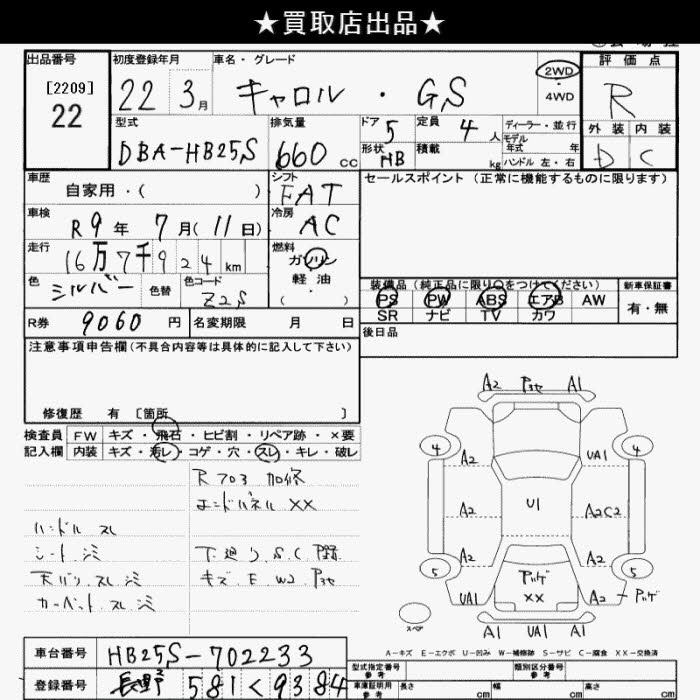 ★買取店出品★
出品番号
[2209]
22
初度登録年月
22 3月
車名・グレード
キャロル ・ GS
2WD
・
4WD
評価点
R
外装 内装
D C
型式
DBA-HB25S
排気量
660 cc
ドア 5
形状 HB
定員 4 人
積載 kg
ディーラー・並行
モデル年式 年
ハンドル 左・右
車歴
自家用・( )
シフト
FAT
セールスポイント(正常に機能するものに限ります)
車検
R 9 年 7 月(11日)
冷房
AC
走行
16万7千924 km
燃料
ガソリン
軽油
( ・ )
色
シルバー
色替
色コード
Z2S
装備品(純正品に限り○をつけてください)
PS PW ABS エアB AW
SR ナビ TV カワ
新車保証書
有・無
R券 9060 円
名変期限 月 日
後日品
注意事項申告欄(不具合内容等は具体的に記入して下さい)
修復歴 有 〔箇所 〕
検査員
記入欄
FW キズ・飛石・ヒビ割・リペア跡・×要
内装 キズ・汚レ・コゲ・穴・スレ・キレ・破レ
R703 加修
エンドパネル XX
ハンドル スレ
シート シミ
天バリ スレ シミ
カーペット スレ シミ
下廻り S.C
キズ E W2
A2 A1
4 4
A2 UA1
U1
A2 A2C2
A2 A2
5 5
XX
UA1 A2
スペア
A1 UA1 A1
A-キズ E-エクボ U-凹み W-補修跡 S-サビ C-腐食 XX-交換済
車台番号 HB25S-702233
登録番号 長野 581 く 9384
型式指定番号
参考
類別区分番号
参考
車庫証明用
参考
長さ cm
幅 cm
高さ cm